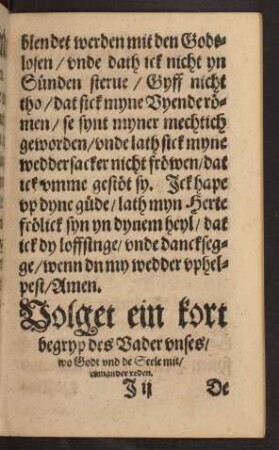 blendet werden mit den Godt-
losen / vnde dath ick nicht yn
Sünden sterue / Gyff nicht
tho / dat sick myne Vyende rö-
men / se synt myner mechtich
geworden / vnde lath sick myne
weddersacker nicht fröwen / dat
ick vmme gestöt sy. Ick hape
vp dyne güde / lath myn Herte
frölick syn yn dynem heyl / dat
ick dy loffsinge / vnde danckseg-
ge / wenn du my wedder vphel-
pest / Amen.
Volget ein kort
begryp des Vader vnses /
wo Godt vnd de Seele mit /
einander reden.
J ij De